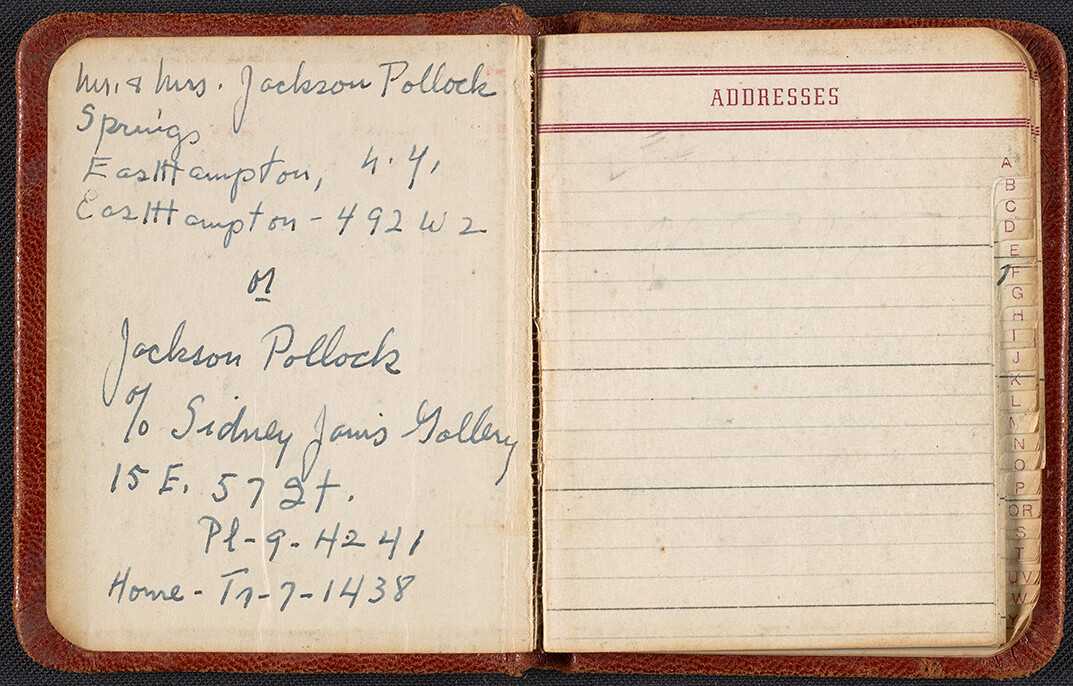 Mr. & Mrs. Jackson Pollock
Springs
EastHampton, N.Y.
EastHampton - 492 W 2
or
Jackson Pollock
c/o Sidney Janis Gallery
15 E. 57 St.
Pl-9-4241
Home - Tr-7-1438
ADDRESSES
A
B
C
D
E
F
G
H
I
J
K
L
M
N
O
P
QR
S
T
UV
W
Y